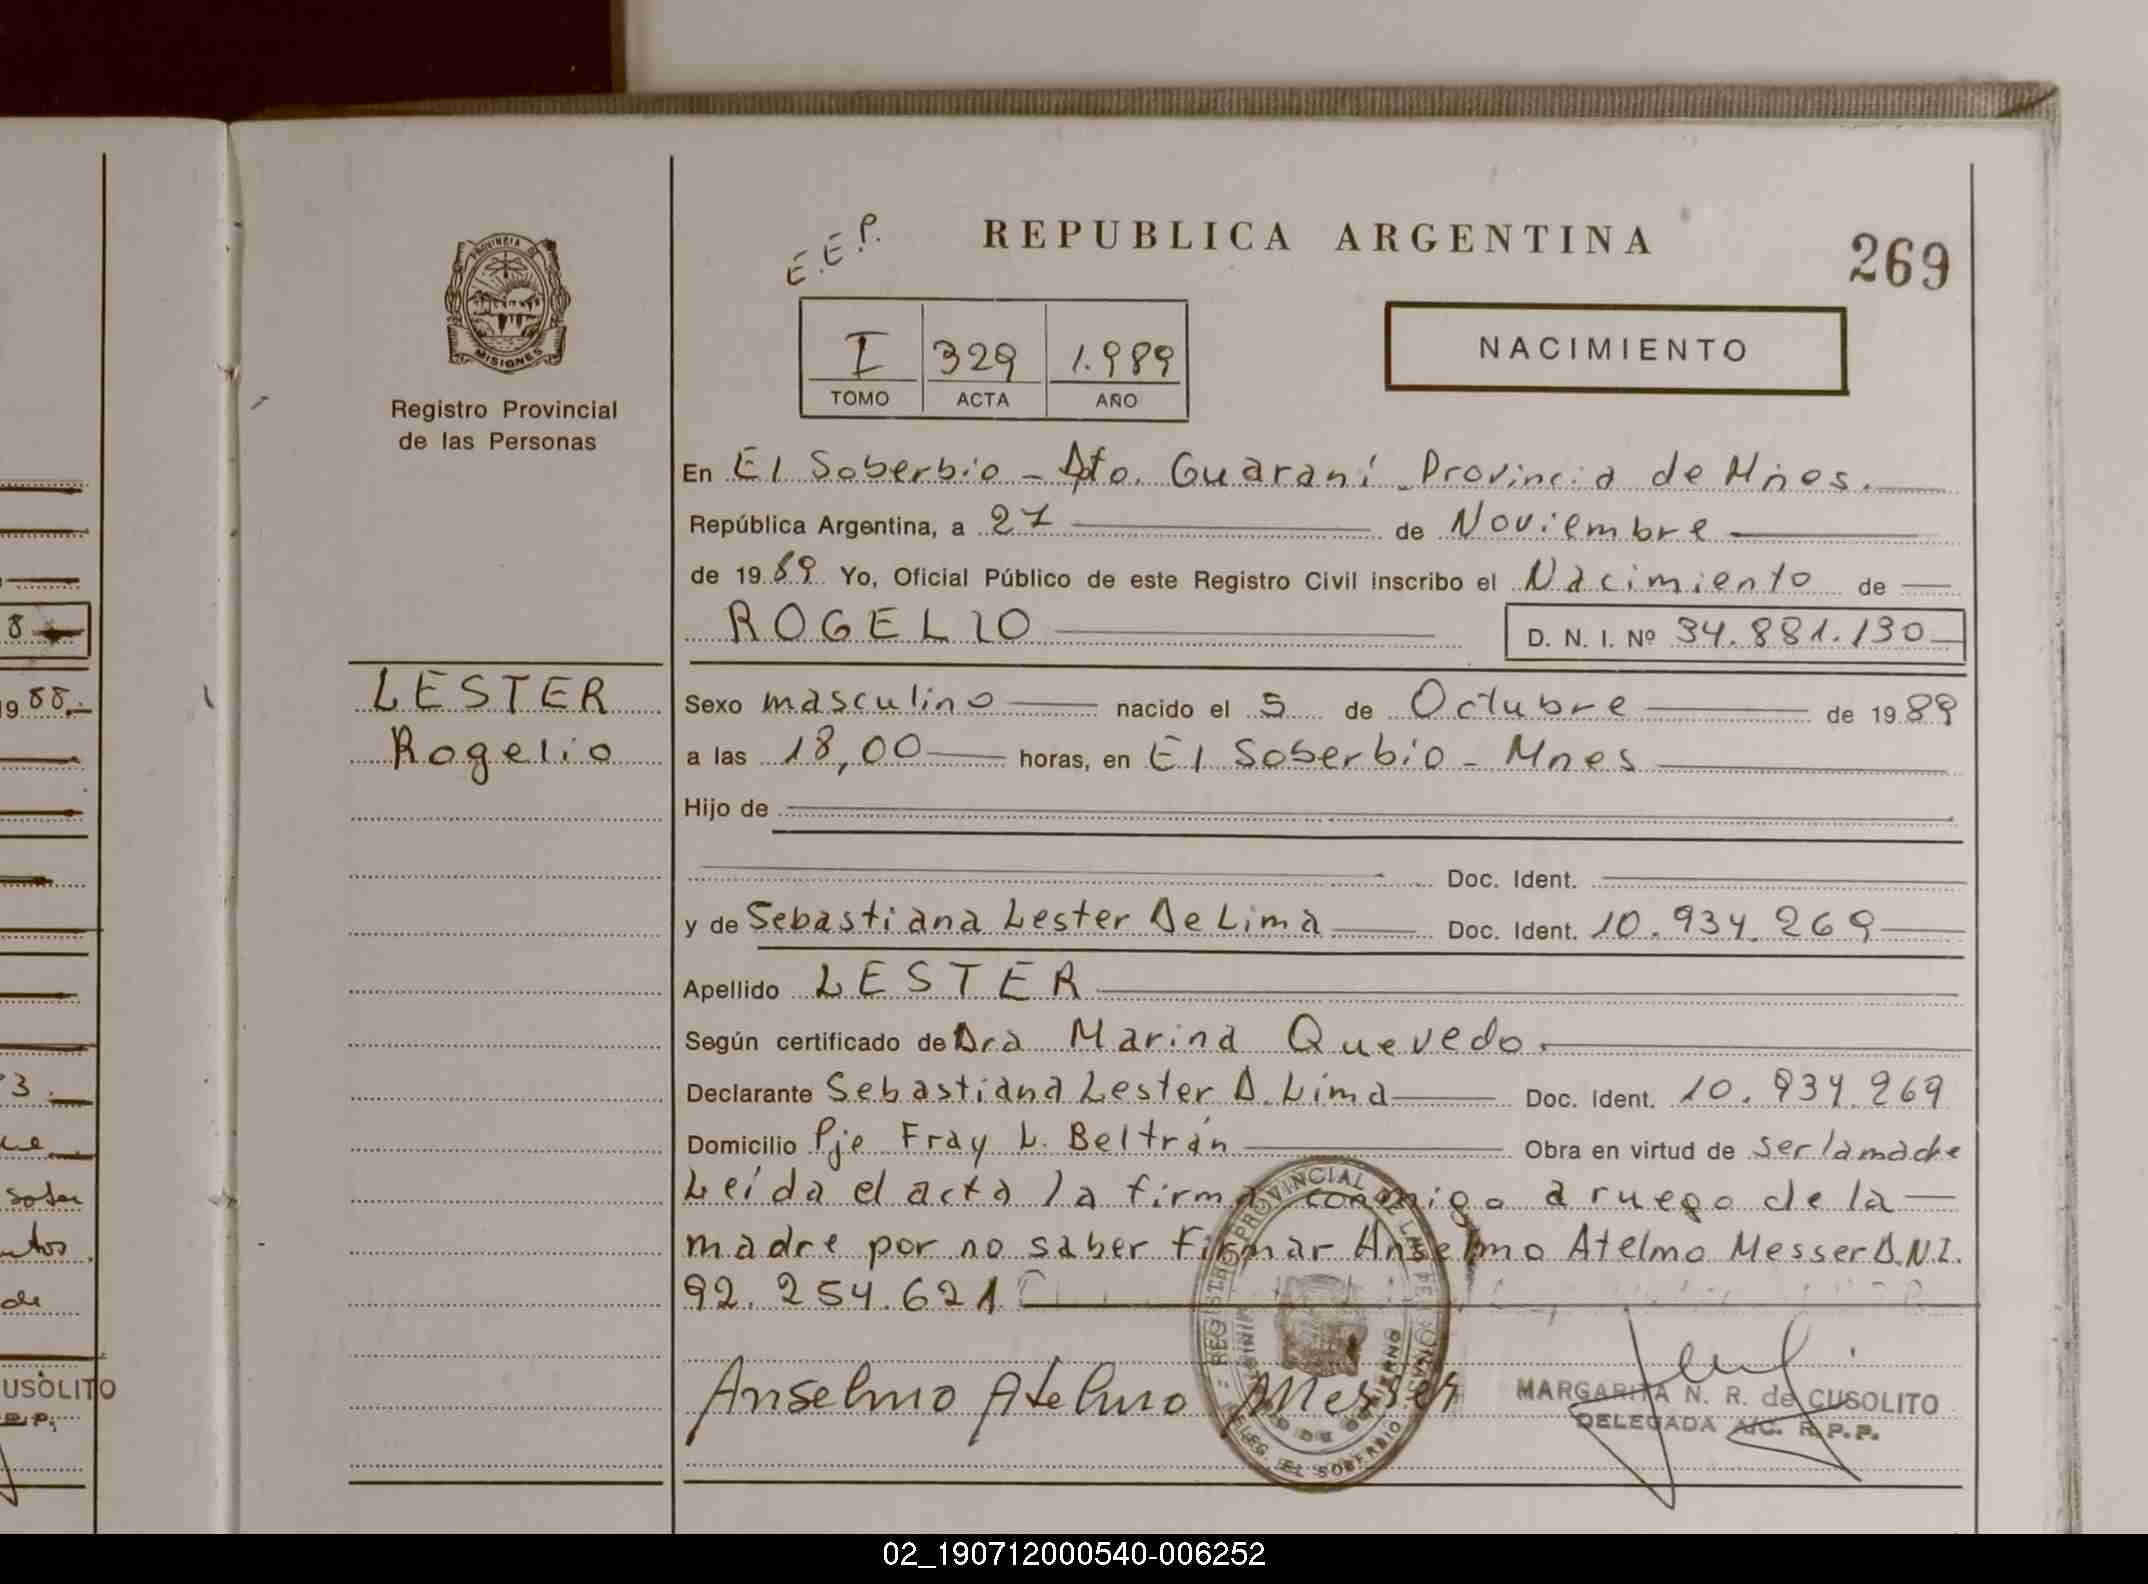 E.E.P.
REPUBLICA ARGENTINA
269
PROVINCIA DE
MISIONES
Registro Provincial
de las Personas
I 329 1.989
TOMO ACTA AÑO
NACIMIENTO
En El Soberbio - Dto. Guaraní - Provincia de Mnes.
República Argentina, a 27 de Noviembre
de 1989 Yo, Oficial Público de este Registro Civil inscribo el Nacimiento de
ROGELIO D. N. I. Nº 34.881.130
LESTER
Rogelio
Sexo masculino nacido el 5 de Octubre de 1989
a las 18,00 horas, en El Soberbio - Mnes
Hijo de
Doc. Ident.
y de Sebastiana Lester De Lima Doc. Ident. 10.934.269
Apellido LESTER
Según certificado de Dra Marina Quevedo.
Declarante Sebastiana Lester D. Lima Doc. Ident. 10.934.269
Domicilio Pje Fray L. Beltrán Obra en virtud de ser la madre
Leída el acta la firma conmigo a ruego de la
madre por no saber firmar Anselmo Atelmo Messer D.N.I.
92.254.621
Anselmo Atelmo Messer
REGISTRO PROVINCIAL DE LAS PERSONAS
DELEG. EL SOBERBIO
MARGARITA N. R. de CUSOLITO
DELEGADA A/C. R.P.P.
8
1988.-
3
de
USOLITO
02_190712000540-006252